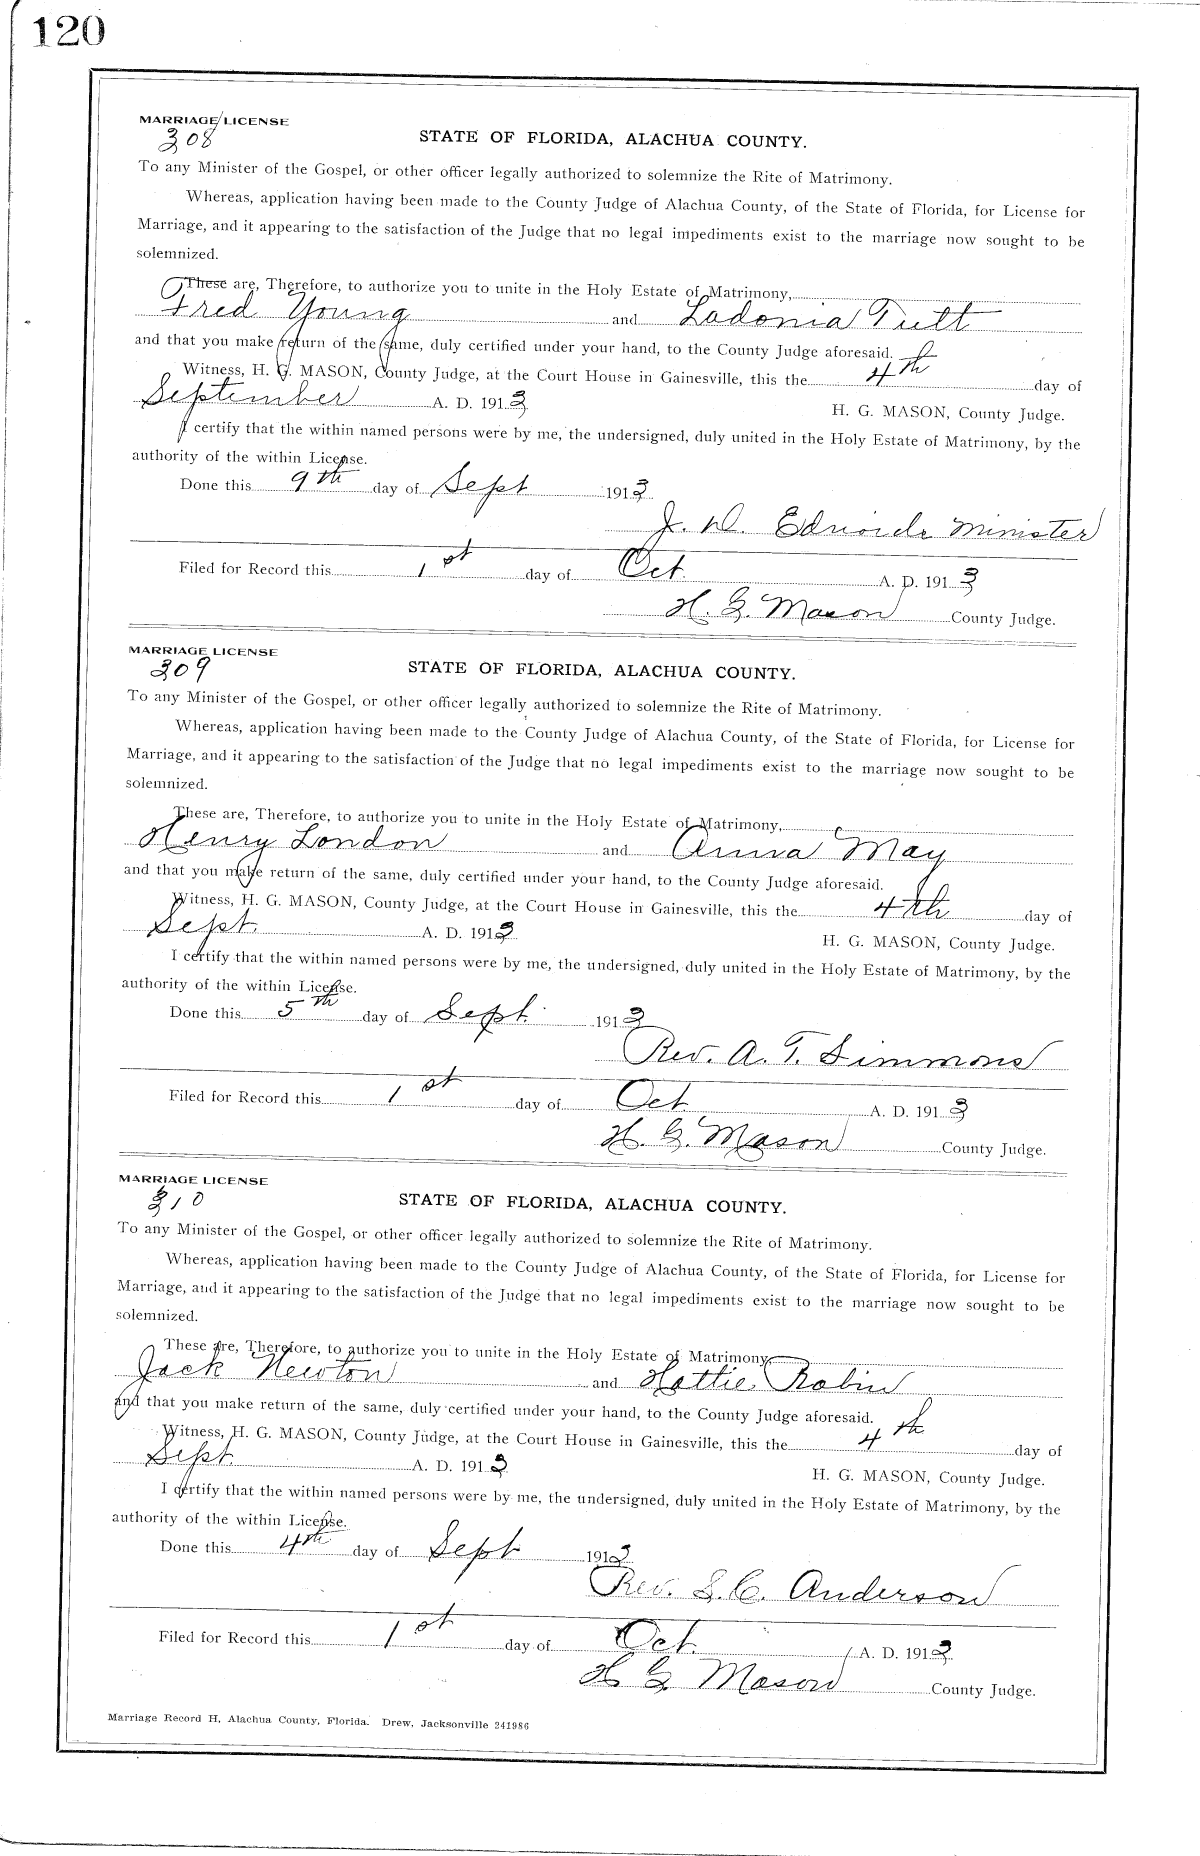 120
MARRIAGE LICENSE
308
STATE OF FLORIDA, ALACHUA COUNTY.
To any Minister of the Gospel, or other officer legally authorized to solemnize the Rite of Matrimony.
Whereas, application having been made to the County Judge of Alachua County, of the State of Florida, for License for
Marriage, and it appearing to the satisfaction of the Judge that no legal impediments exist to the marriage now sought to be
solemnized.
These are, Therefore, to authorize you to unite in the Holy Estate of Matrimony,
Fred Young and Ladonia Tutt
and that you make return of the same, duly certified under your hand, to the County Judge aforesaid.
Witness, H. G. MASON, County Judge, at the Court House in Gainesville, this the 4th day of
September A. D. 1913 H. G. MASON, County Judge.
I certify that the within named persons were by me, the undersigned, duly united in the Holy Estate of Matrimony, by the
authority of the within License.
Done this 9th day of Sept 1913
J. D. Edwards Minister
Filed for Record this 1st day of Oct. A. D. 1913
H. G. Mason County Judge.
MARRIAGE LICENSE
309
STATE OF FLORIDA, ALACHUA COUNTY.
To any Minister of the Gospel, or other officer legally authorized to solemnize the Rite of Matrimony.
Whereas, application having been made to the County Judge of Alachua County, of the State of Florida, for License for
Marriage, and it appearing to the satisfaction of the Judge that no legal impediments exist to the marriage now sought to be
solemnized.
These are, Therefore, to authorize you to unite in the Holy Estate of Matrimony,
Henry London and Anna May
and that you make return of the same, duly certified under your hand, to the County Judge aforesaid.
Witness, H. G. MASON, County Judge, at the Court House in Gainesville, this the 4th day of
Sept. A. D. 1913 H. G. MASON, County Judge.
I certify that the within named persons were by me, the undersigned, duly united in the Holy Estate of Matrimony, by the
authority of the within License.
Done this 5th day of Sept. 1913
Rev. A. T. Simmons
Filed for Record this 1st day of Oct A. D. 1913
H. G. Mason County Judge.
MARRIAGE LICENSE
310
STATE OF FLORIDA, ALACHUA COUNTY.
To any Minister of the Gospel, or other officer legally authorized to solemnize the Rite of Matrimony.
Whereas, application having been made to the County Judge of Alachua County, of the State of Florida, for License for
Marriage, and it appearing to the satisfaction of the Judge that no legal impediments exist to the marriage now sought to be
solemnized.
These are, Therefore, to authorize you to unite in the Holy Estate of Matrimony,
Jack Newton and Hattie Robin
and that you make return of the same, duly certified under your hand, to the County Judge aforesaid.
Witness, H. G. MASON, County Judge, at the Court House in Gainesville, this the 4th day of
Sept. A. D. 1913 H. G. MASON, County Judge.
I certify that the within named persons were by me, the undersigned, duly united in the Holy Estate of Matrimony, by the
authority of the within License.
Done this 4th day of Sept 1913
Rev. S. C. Anderson
Filed for Record this 1st day of Oct. A. D. 1913
H G Mason County Judge.
Marriage Record H, Alachua County, Florida. Drew, Jacksonville 241986